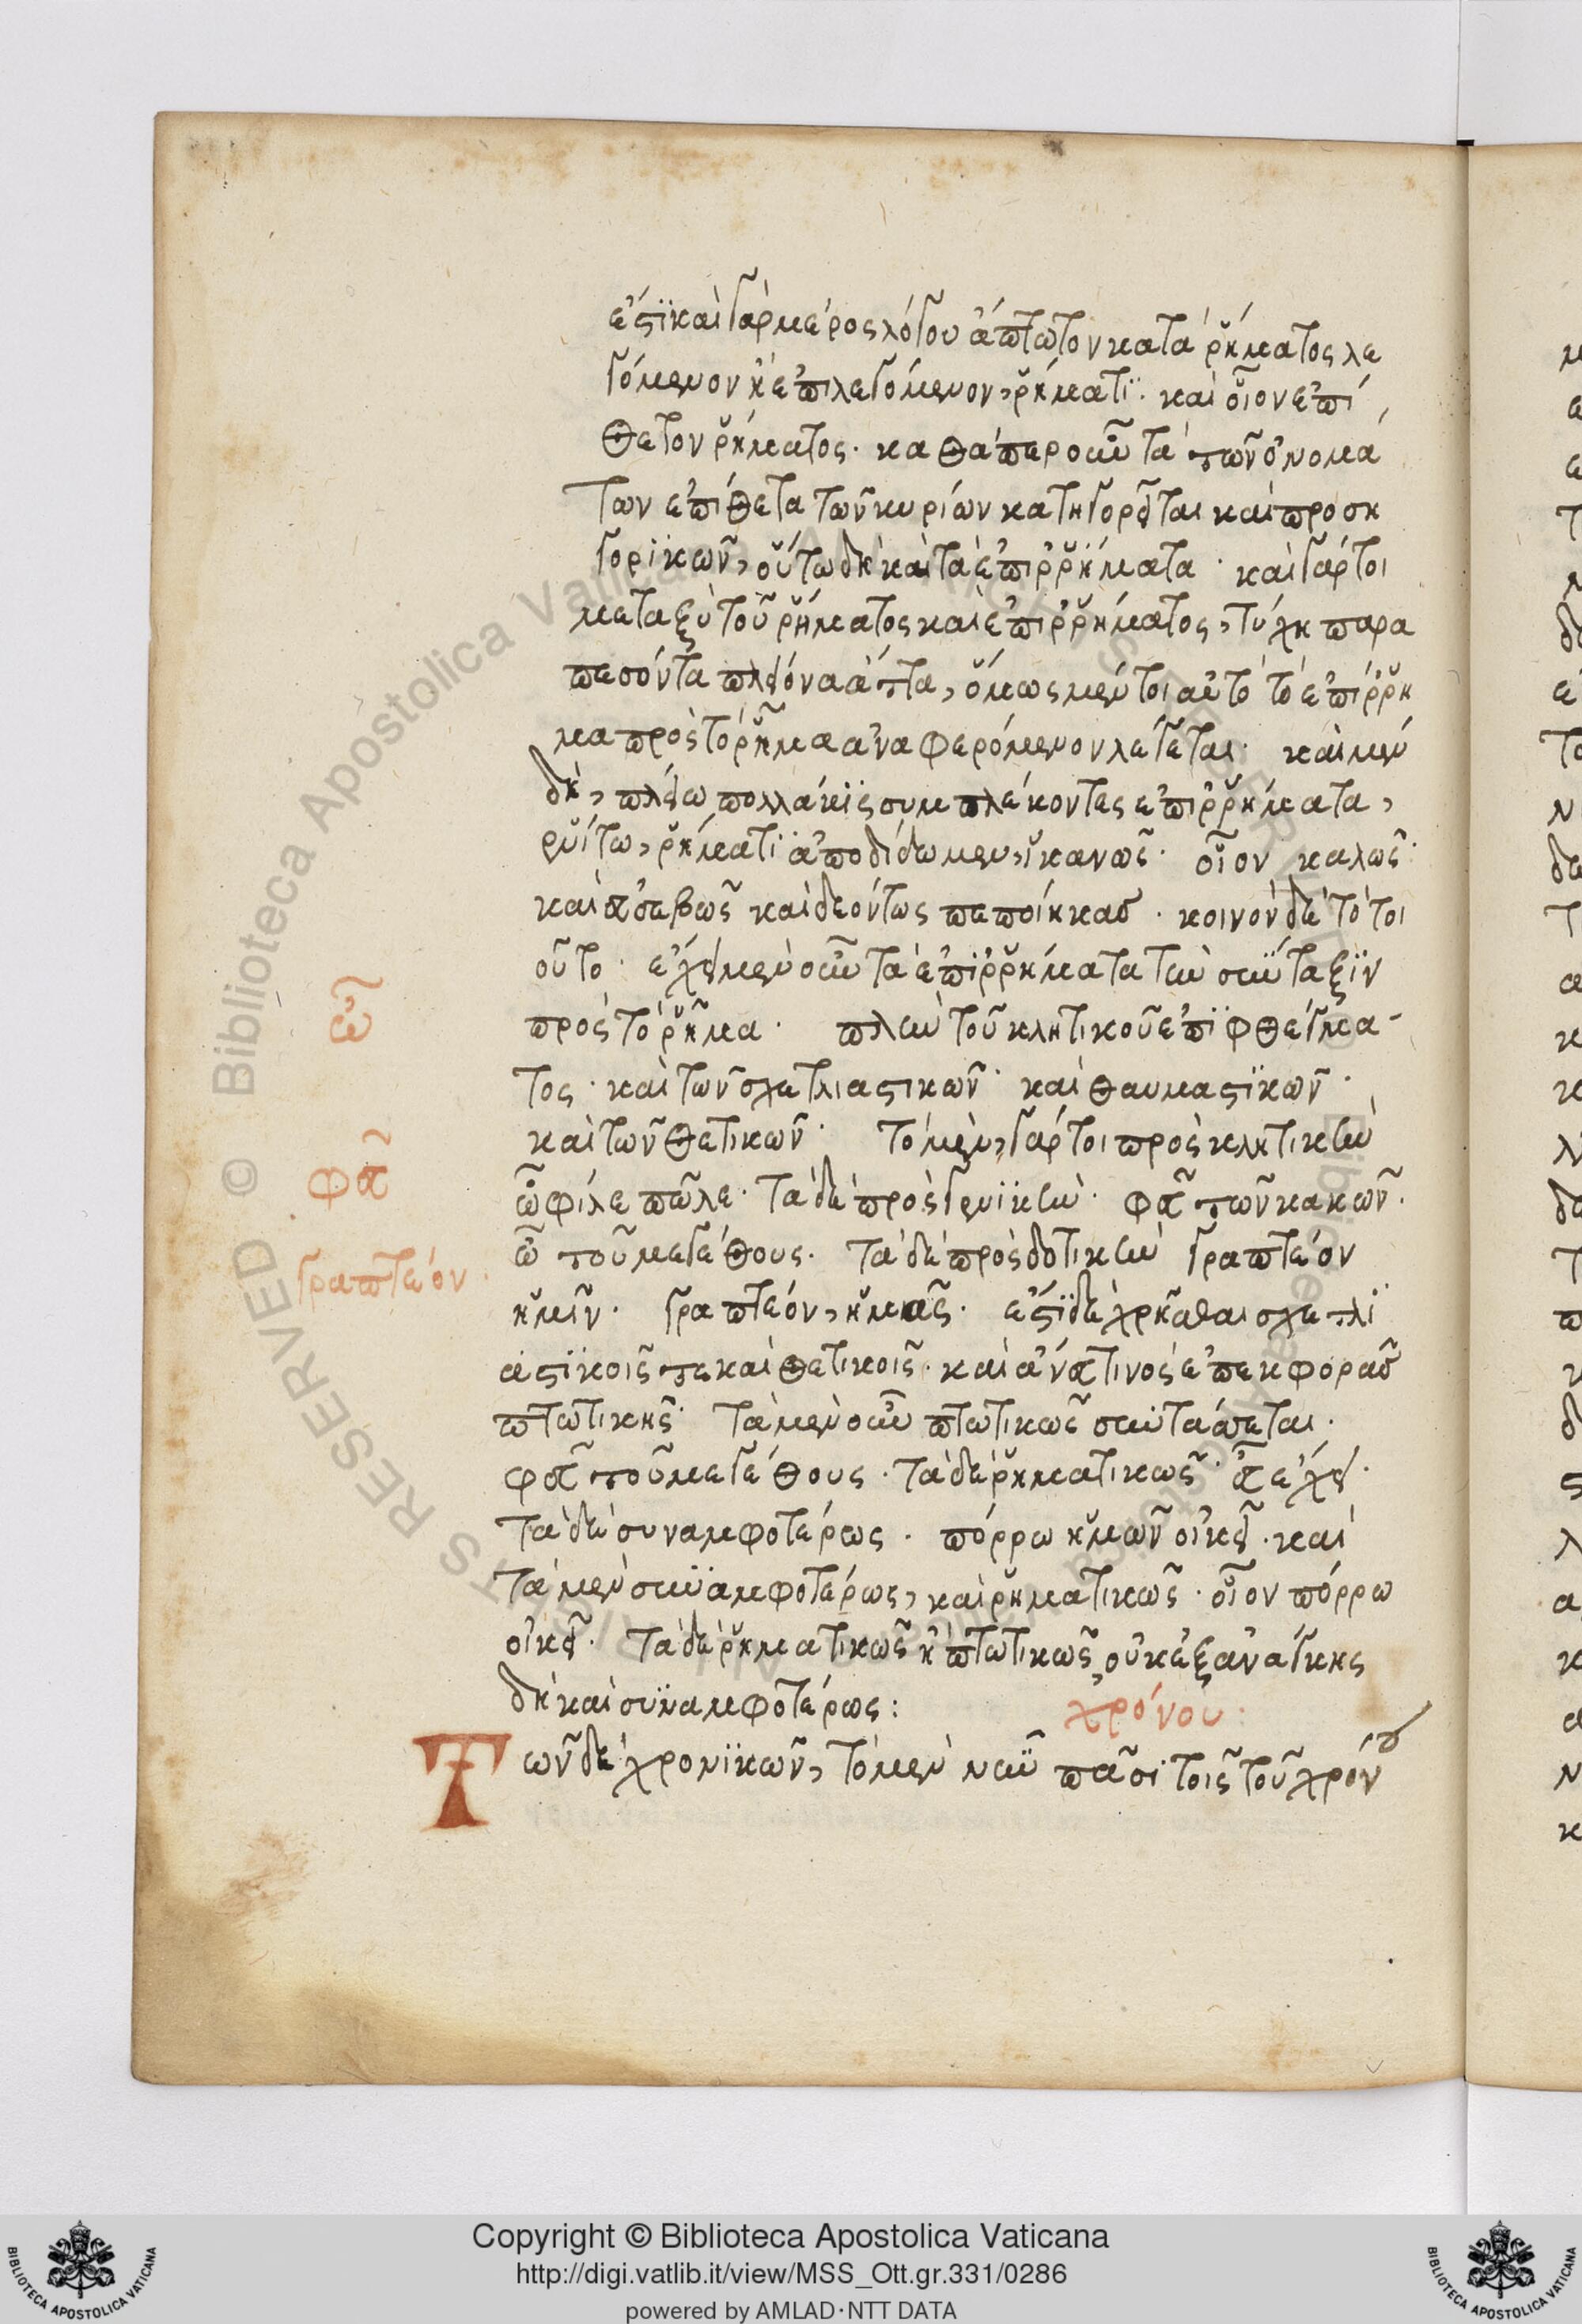 ἔστι καὶ γὰρ μέρος λόγου ἄπτωτον κατὰ ῥήματος λε
γόμενον ἢ ἐπιλεγόμενον, ῥήματι. καὶ οἷον ἐπί
θετον ῥήματος. καθάπερ οὖν τὰ τῶν ὀνομά
των ἐπίθετα τῶν κυρίων κατηγορεῖται καὶ προση
γορικῶν, οὕτω δὴ καὶ τὰ ἐπιρρήματα. καὶ γάρ τοι
μεταξὺ τοῦ ῥήματος καὶ ἐπιρρήματος, τύχη παρα
πεσόντα πλείονα ἄττα, ὅμως μέν τοι αὐτὸ τὸ ἐπίρρη
μα πρὸς τὸ ῥῆμα ἀναφερόμενον λέγεται. καὶ μὲν
δὴ, πλείω πολλάκις συμπλέκοντες ἐπιρρήματα,
ἑνί τω, ῥήματι ἀποδίδωμεν, ἱκανῶς. οἷον καλῶς
καὶ εὐσεβῶς καὶ δεόντως πεποίηκας. κοινὸν δὲ τό τοι
οῦτο. ἔχει μὲν οὖν τὰ ἐπιρρήματα τὴν σύνταξιν
πρὸς τὸ ῥῆμα. πλὴν τοῦ κλητικοῦ ἐπιφθέγμα-
τος. καὶ τῶν σχετλιαστικῶν. καὶ θαυμαστικῶν.
καὶ τῶν θετικῶν. τὸ μὲν, γάρ τοι πρὸς κλητικὴν
ὦ φίλε πῶλε. τὰ δὲ πρὸς γενικὴν. φεῦ τῶν κακῶν.
ὢ τοῦ μεγέθους. τὰ δὲ πρὸς δοτικὴν γραπτέον
ἡμῖν. γραπτέον, ἡμᾶς. ἔστι δὲ χρῆσθαι σχετλι
αστικοῖς τε καὶ θετικοῖς. καὶ ἄνευ τινὸς ἐπεκφορᾶς
πτωτικῆς. τὰ μὲν οὖν πτωτικῶς συντάττεται.
φεῦ τοῦ μεγέθους. τὰ δὲ ῥηματικῶς. εὖ ἔχει.
τὰ δὲ συναμφοτέρως. πόρρω ἡμῶν οἰκεῖ. καὶ
τὰ μὲν συναμφοτέρως, καὶ ῥηματικῶς. οἷον πόρρω
οἰκεῖ. τὰ δὲ ῥηματικῶς ἢ πτωτικῶς, οὐκ ἐξ ἀνάγκης
δὴ καὶ συναμφοτέρως:
χρόνου.
Τῶν δὲ χρονικῶν, τὸ μὲν νῦν πᾶσι τοῖς τοῦ χρόνου
εὖ
φεῦ
γραπτέον
Copyright © Biblioteca Apostolica Vaticana
http://digi.vatlib.it/view/MSS_Ott.gr.331/0286
powered by AMLAD·NTT DATA